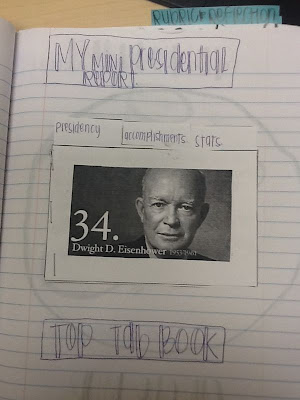 Rubric + Reflection
MY MINI REPORT presidential
presidency accomplishments stats
34.
Dwight D. Eisenhower 1953-1961
TOP Tab BOOK